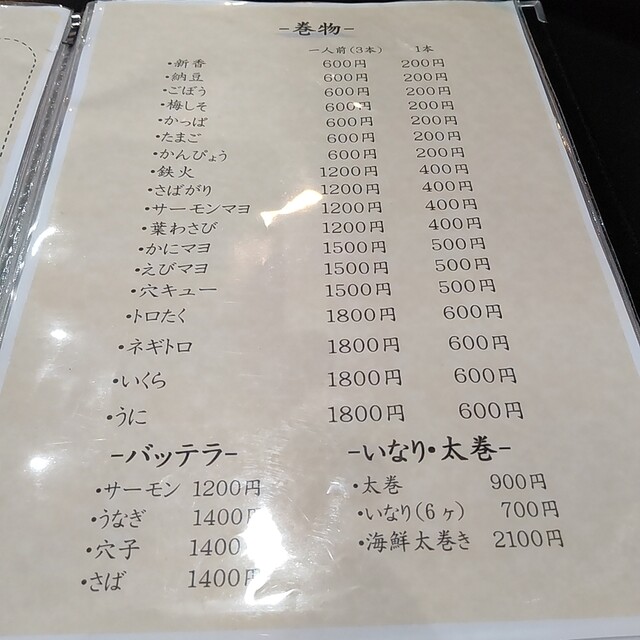 -巻物-
一人前(3本) 1本
・新香 600円 200円
・納豆 600円 200円
・ごぼう 600円 200円
・梅しそ 600円 200円
・かっぱ 600円 200円
・たまご 600円 200円
・かんぴょう 600円 200円
・鉄火 1200円 400円
・さばがり 1200円 400円
・サーモンマヨ 1200円 400円
・葉わさび 1200円 400円
・かにマヨ 1500円 500円
・えびマヨ 1500円 500円
・穴キュー 1500円 500円
・トロたく 1800円 600円
・ネギトロ 1800円 600円
・いくら 1800円 600円
・うに 1800円 600円
-バッテラ-
・サーモン 1200円
・うなぎ 1400円
・穴子 1400
・さば 1400円
-いなり・太巻-
・太巻 900円
・いなり(6ヶ) 700円
・海鮮太巻き 2100円